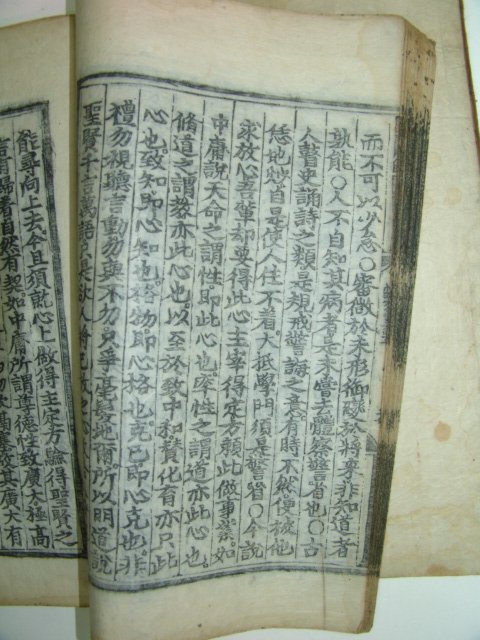 而不可以少怠○審微於未形御變於將來非知道者
孰能○人不自知其病者是未嘗去體察警省也○古
人瞽史誦詩之類是規戒警誨之意有時不然便被他
恁地炒自是使人住不着大抵學問須是警省○今說
求放心吾輩却要得此心主宰得定方賴此做事業如
中庸說天命之謂性即此心也率性之謂道亦此心也
脩道之謂敎亦此心也以至於致中和賛化育亦只此
心也致知即心知也格物即心格也克己即心克也非
禮勿視聽言動勿與不勿只爭毫髮地爾所以明道說
聖賢千言萬語只是欲人將已放之心
能尋向上去今且須就心上做得主定方驗得聖賢之
言有歸着自然有契如中庸所謂尊德性致廣大極高
致其廣大有